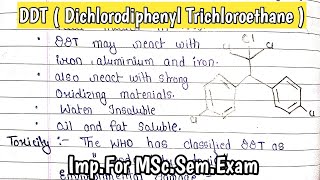 DDT ( Dichlorodiphenyl Trichloroethane )
• DDT may react with
iron, aluminium and iron.
• also react with strong
Oxidizing materials.
• Water Insoluble
• Oil and Fat Soluble.
Toxicity :- The WHO has classified DDT as
Cl
Cl
Cl
Cl
Imp.For MSc.Sem.Exam